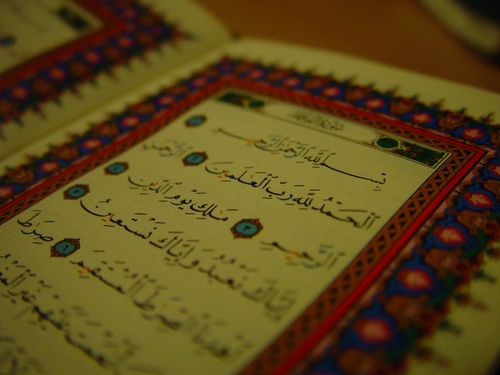 بِسْمِ ٱللَّهِ ٱلرَّحْمَٰنِ ٱلرَّحِيمِ ١
ٱلْحَمْدُ لِلَّهِ رَبِّ ٱلْعَٰلَمِينَ ٢ ٱلرَّحْمَٰنِ
ٱلرَّحِيمِ ٣ مَٰلِكِ يَوْمِ ٱلدِّينِ ٤
إِيَّاكَ نَعْبُدُ وَإِيَّاكَ نَسْتَعِينُ ٥
ٱهْدِنَا ٱلصِّرَٰطَ ٱلْمُسْتَقِيمَ ٦ صِرَٰطَ
أَنْعَمْتَ عَلَيْهِمْ غَيْرِ